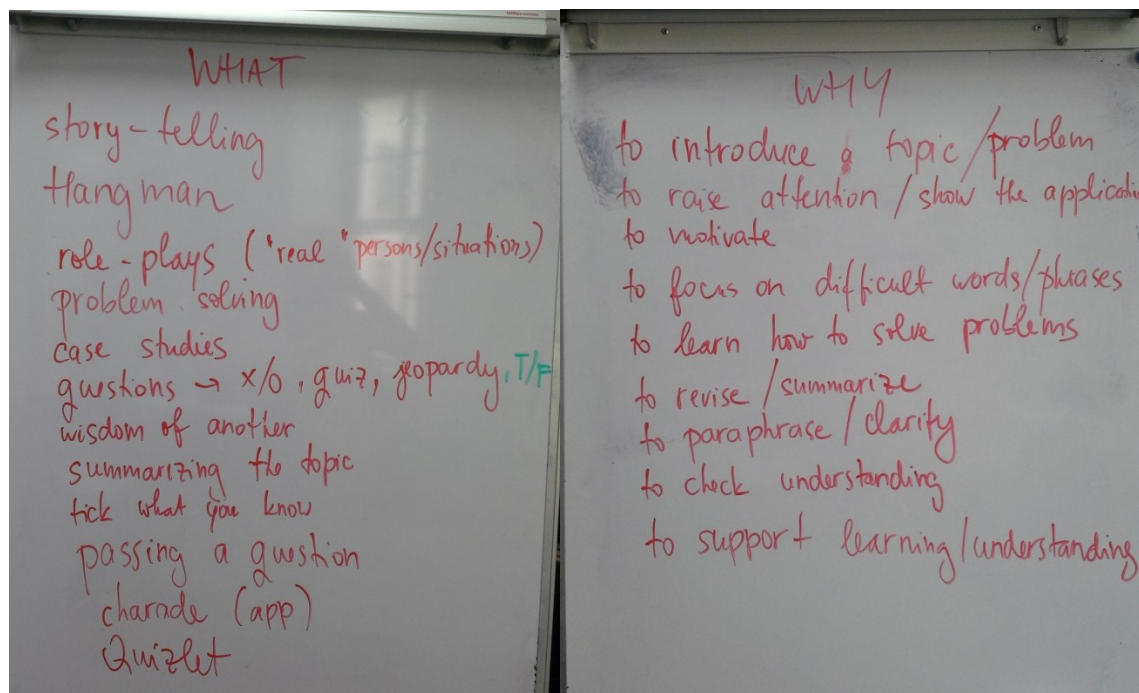 WHAT
story-telling
Hangman
role-plays ("real" persons/situations)
problem solving
case studies
questions → x/o, quiz, jeopardy, T/F
wisdom of another
summarizing the topic
tick what you know
passing a question
charade (app)
Quizlet
WHY
to introduce a topic/problem
to raise attention / show the applicati
to motivate
to focus on difficult words/phrases
to learn how to solve problems
to revise /summarize
to paraphrase / clarify
to check understanding
to support learning/understanding